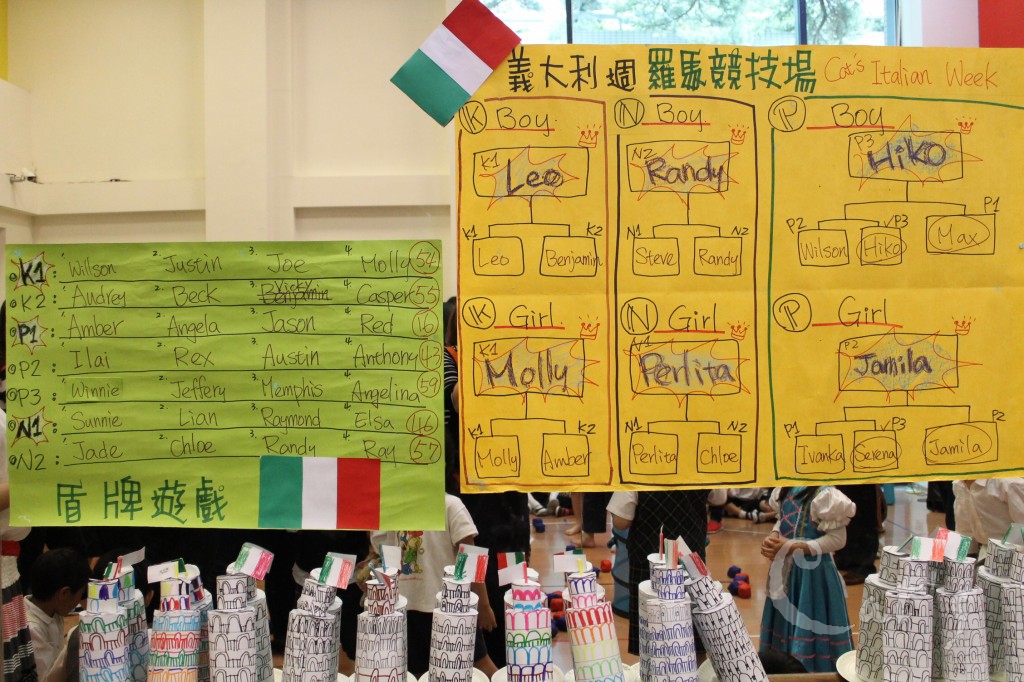 K1: 1. Willson 2. Justin 3. Joe 4. Molly 54
K2: 1. Audrey 2. Beck 3. Vicky 4. Casper 55
P1: 1. Amber 2. Angela 3. Jason 4. Red 16
P2: 1. Ilai 2. Rex 3. Austin 4. Anthony 43
P3: 1. Winnie 2. Jeffery 3. Memphis 4. Angelina 59
N1: 1. Sunnie 2. Lian 3. Raymond 4. Elsa 46
N2: 1. Jade 2. Chloe 3. Randy 4. Ray 57
盾牌遊戲
義大利週 羅馬競技場 Cat's Italian Week
K Boy
K1 Leo
K1 Leo K2 Benjamin
N Boy
N2 Randy
N1 Steve N2 Randy
P Boy
P3 Hiko
P2 Wilson P3 Hiko P1 Max
K Girl
K1 Molly
K1 Molly K2 Amber
N Girl
N1 Perlita
N1 Perlita N2 Chloe
P Girl
P2 Jamila
P1 Ivanka P3 Serena P2 Jamila